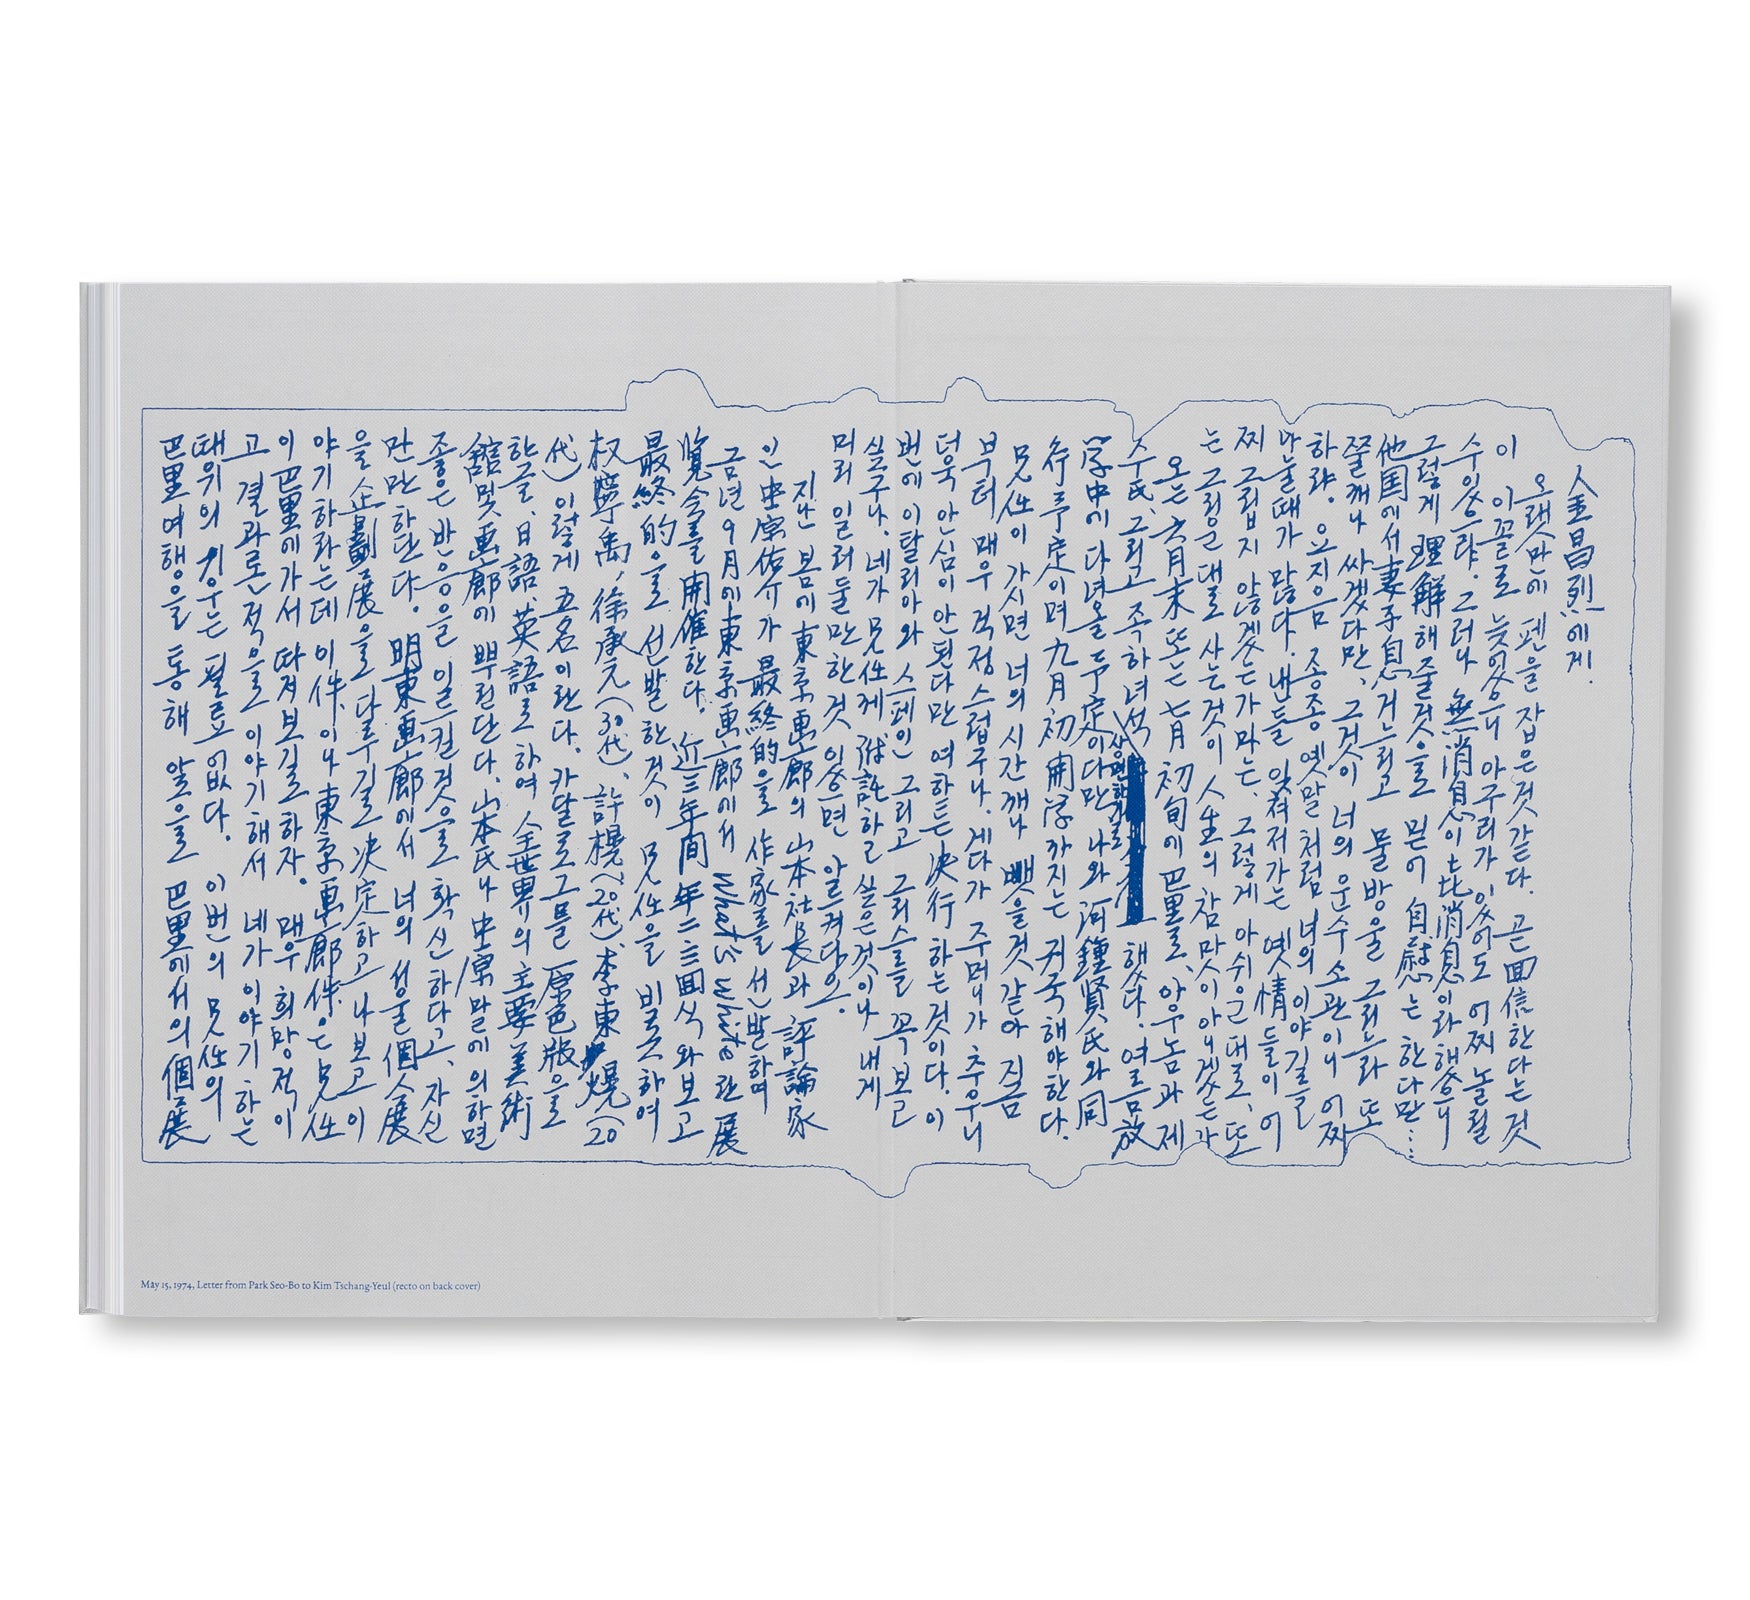 金昌烈에게.
오랫만에 펜을 잡은것 같다. 곧 回信한다는 것
이 이꼴로 늦었으니 아구리가 있어도 어찌 놀릴
수 있으랴. 그러나 無消息이 比消息이라 했으니
그렇게 理解해 줄것을 믿어 自慰는 한다만...
他国에서 妻子息 거느리고 물방울 그리느라 또
쫄깨나 싸겠다만, 그것이 너의 운수 소관이니 어찌
하랴. 요지음 종종 옛말처럼 너의 이야길 들
나눌때가 많다. 낸들 잊혀저가는 옛情들이 어
찌 그립지 않겠는가마는, 그렇게 아쉬운대로, 또
는 그리운대로 사는것이 人生의 참맛이 아니겠는가
오는 六月末 또는 七月初旬에 巴里로, 아우놈과 제
수氏, 그리고 족하녀석 상면하기로 했다. 여름放
学中에 다녀올 予定이다만 나와 河鍾賢氏와 同
行予定이며 九月初 開学까지는 귀국해야한다.
兄任이 가시면 너의 시간깨나 뺏을것 같아 지금
부터 매우 걱정스럽구나. 게다가 주머니가 추우니
더욱 안심이 안된다만 여하튼 決行하는것이다. 이
번에 이탈리아와 스페인 그리고 그리스를 꼭 보고
싶구나. 네가 兄任께 付託하고 싶은것이나 내게
미리 일러둘만한것 있으면 알으켜다으.
지난 봄에 東京画廊의 山本社長과 評論家
인 中原佑介가 最終的을 作家를 선발하며
금년 9月에 東京画廊에서 What is white란 展
覧会를 開催한다. 近三年間 年二三回식 와보고
最終的으로 선발한것이 兄任을 비롯하여
权寧禹, 徐承元(30代), 許榥(20代) 李東熀(20
代) 이렇게 五名이란다. 카달로그를 原色版으로
한글, 日語, 英語로 하여 全世界의 主要 美術
館및 画廊에 뿌린단다. 山本氏나 中原말에 의하면
좋은 반응을 일으킬것으로 확신하다고, 자신
만만하단다. 明東画廊에서 너의 서울個人展
을 企劃展을 다루길 決定하고 나보고 이
야기하라는데 이件이나 東京画廊件은 兄任
이 巴里에 가서 따져보길 하자. 매우 희망적이
고 결과론적으로 이야기해서 네가 이야기하는
때위의 는 필료없다. 이번의 兄任의
巴里여행을 통해 巴里에서의 個展
May 15, 1974, Letter from Park Seo-Bo to Kim Tschang-Yeul (recto on back cover)